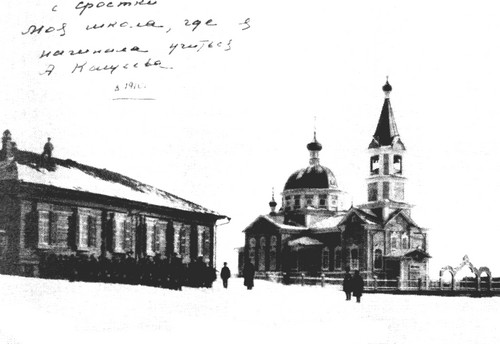 с Сростки
Моя школа, где я
начинала учиться
А
в 191